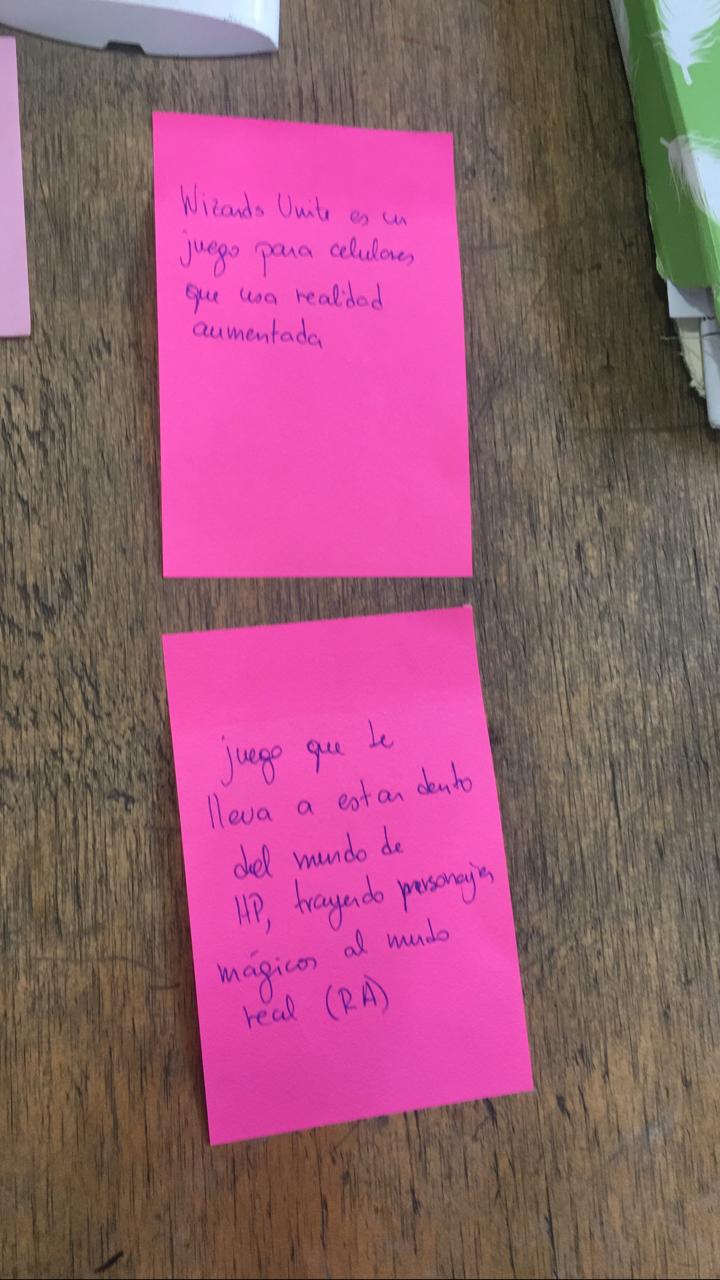 Wizards Unite es un
juego para celulares
que usa realidad
aumentada
juego que te
lleva a estar dento
del mundo de
HP, trayendo personajes
mágicos al mundo
real (RA)